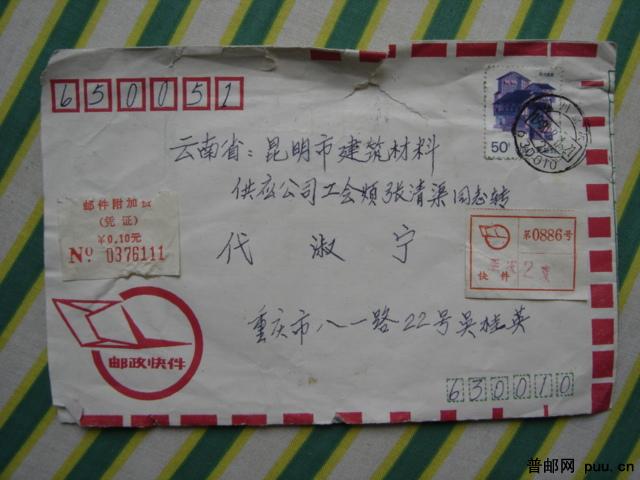 650051
50分
云南省：昆明市建筑材料
供应公司工会烦张清渠同志转
代淑宁
邮件附加
(凭证)
￥0.10元
Nº 0376111
第0886号
快件
重庆市八一路22号吴桂英
邮政快件
630010
普邮网 puu.cn